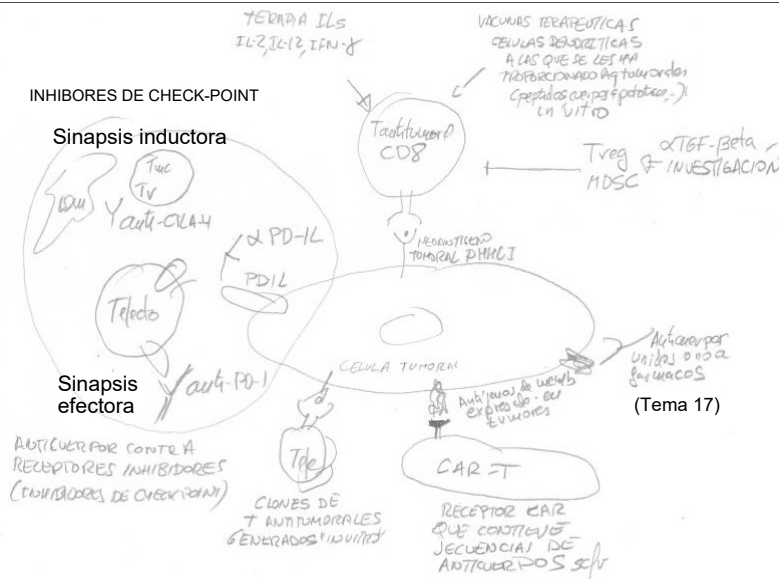 TERAPIA ILs
IL-2, IL-12, IFN-γ
VACUNAS TERAPEUTICAS
CELULAS DENDRITICAS
A LAS QUE SE LES HA
PROPORCIONADO Ag tumorales
(peptidos cuerpos apoptoticos,..)
IN VITRO
INHIBORES DE CHECK-POINT
Sinapsis inductora
T antitumoral
CD8
Treg
MDSC
αTGF-Beta
INVESTIGACIÓN
anti-CTLA-4
NEOANTIGENO
TUMORAL PMHCI
α PD-1L
PD1L
Tefecto
CELULA TUMORAL
Sinapsis
efectora
anti-PD-1
Anticuerpos
unidos o no a
farmacos
(Tema 17)
Antígenos de memb
expresado en
tumores
ANTICUERPOS CONTRA
RECEPTORES INHIBIDORES
(INHIBIDORES DE CHECKPOINT)
CAR-T
CLONES DE
T ANTITUMORALES
GENERADOS "INVITRO"
RECEPTOR CAR
QUE CONTIENE
SECUENCIAS DE
ANTICUERPOS scfv